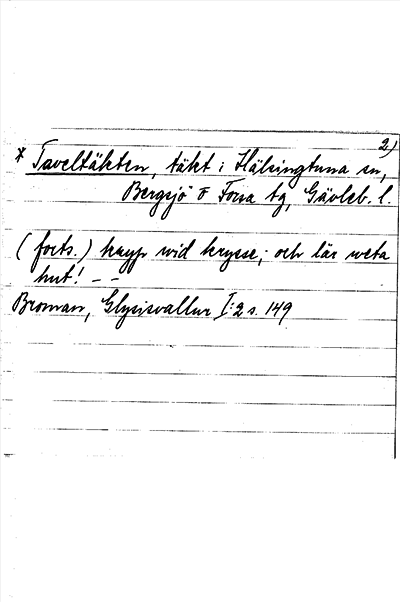 2)
* Taveltäkten, täkt i Hälsingtuna sn,
Bergsjö o Forsa tg, Gävleb. l.
(forts.) krypp wid krysse; och lär weta
hut! – –
Broman, Glysisvallur I:2 s. 149